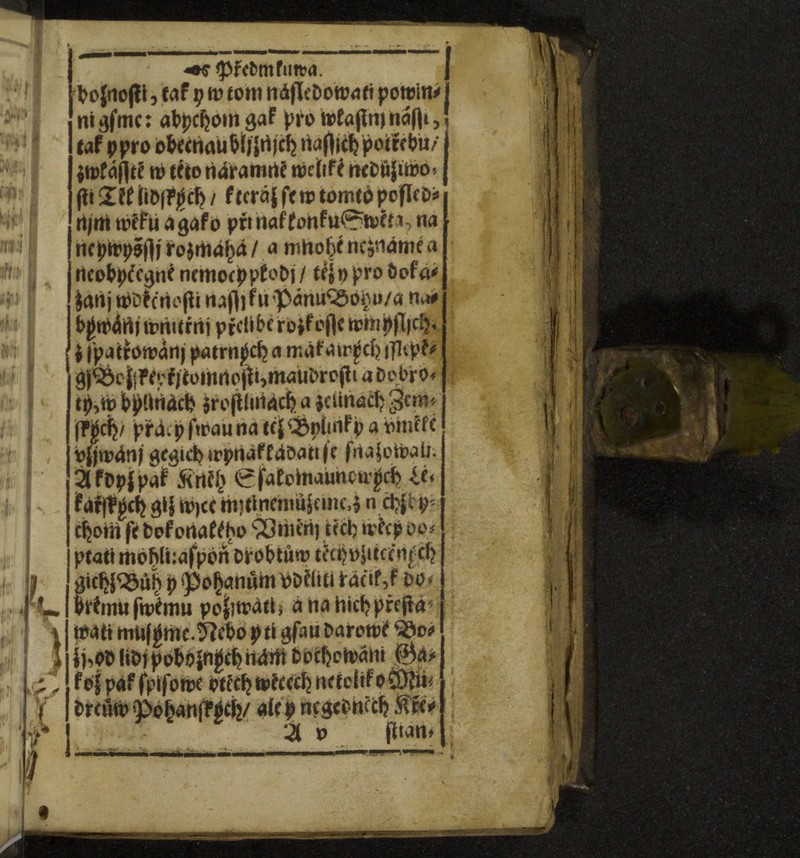 Předmluwa.
božnosti, tak y w tom náſledowati powin-
ni gſme: abychom gak pro wlaſtnj náſſi,
tak y pro obecnau bližnjch naſſich potřebu/
zwláſſtě w této náramné weliké nedůžiwo-
ſti Těl lidſkých / kteráž ſe w tomto poſled-
njm wěku a gako při naſ konku Swěta, na
neywyšſſj rozmáhá / a mnohé neznámé a
neobyčegné nemocy plodj / též y pro doka-
zánj wděčnoſti naſſj ku Pánu Bohu/a na-
býwánj wnitřnj přelibé rozkoſſe w myſſjch,
z ſpatřowánj patrných a makawých ſſlepě-
gj Božſké wſſomocnoſti, maudroſti a dobro-
ty, w bylinách zroſtlinách a zelinách Zem-
ſkých/ prácy ſwau na též Bylinky a vmělé
vžjwánj gegich wynakládati ſe ſnažowali.
A když pak Kněh Sſalomaunowých Lé-
kařſkých giž wjce mjti nemůžeme, z nichž by-
chom ſe dokonalého Vměnj těch wěcy do-
ptati mohli: aſpoň drobtůw těch vžitečných
gichž Bůh y Pohanům vděliti ráčil, k do-
brému ſwému požjwati, a na nich přeſtá-
wati muſýme. Nebo y ti gſau darowé Bo-
žj, od lidj pobožných nám dochowáni. Ga-
kož pak ſpiſowé o těch wěcech netoliko Mu-
drcůw Pohanſkých/ ale y negedněch Kře-
A v ſtian-